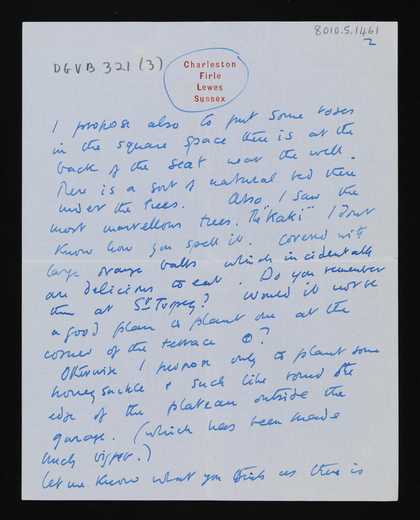 8010.5.1461
2
DGVB 321 (3)
Charleston
Firle
Lewes
Sussex
I propose also to put some roses
in the square space there is at the
back of the seat near the well.
There is a sort of natural bed there
under the trees. Also I saw the
most marvellous trees. The "Kaki" I don't
know how you spell it. Covered with
large orange balls which incidentally
are delicious to eat. Do you remember
them at St Tropez? Would it not be
a good plan to plant one at the
corner of the terrace ?
Otherwise I propose only to plant some
honeysuckle & such like round the
edge of the plateau outside the
garage. (which has been made
much bigger.)
Let me know what you think as there is